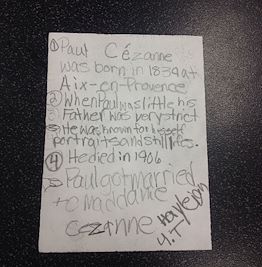 ① Paul Cézanne
was born in 1839 at
Aix-en-Provence
② When Paul was little his
③ Father was very strict
⑤ He was known for his self
portraits and still lifes.
④ He died in 1906
Paul got married
to Maddame
Cezanne
4.T